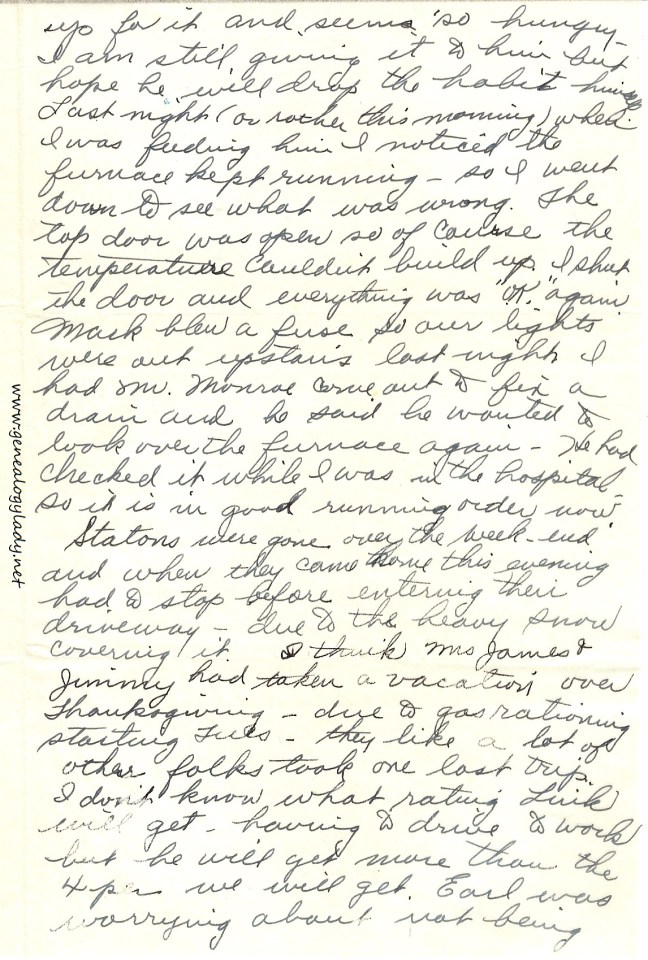 up for it and seems so hungry –
I am still giving it to him but
hope he will drop the habit himself
Last night (or rather this morning) when
I was feeding him I noticed the
furnace kept running – so I went
down to see what was wrong. The
top door was open so of course the
temperature couldn't build up. I shut
the door and everything was "OK." again
Mack blew a fuse so our lights
were out upstairs last night. I
had Mr. Monroe come out to fix a
drain and he said he wanted to
look over the furnace again – He had
checked it while I was in the hospital
so it is in good running order now
Statons were gone over the week-end
and when they came home this evening
had to stop before entering their
driveway – due to the heavy snow
covering it. I think Mrs James &
Jimmy had taken a vacation over
Thanksgiving – due to gas rationing
starting Tues – they like a lot of
other folks took one last trip.
I don't know what rating Link
will get – having to drive to work
but he will get more than the
4 per we will get. Earl was
worrying about not being
www.genealogylady.net